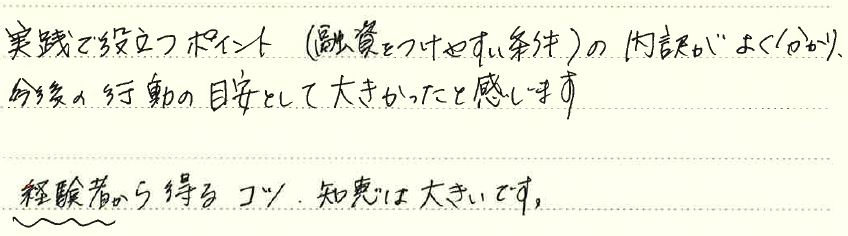 実践で役立つポイント (融資をつけやすい条件)の内訳がよく分かり、
今後の行動の目安として大きかったと感じます
経験者から得るコツ、知恵は大きいです。